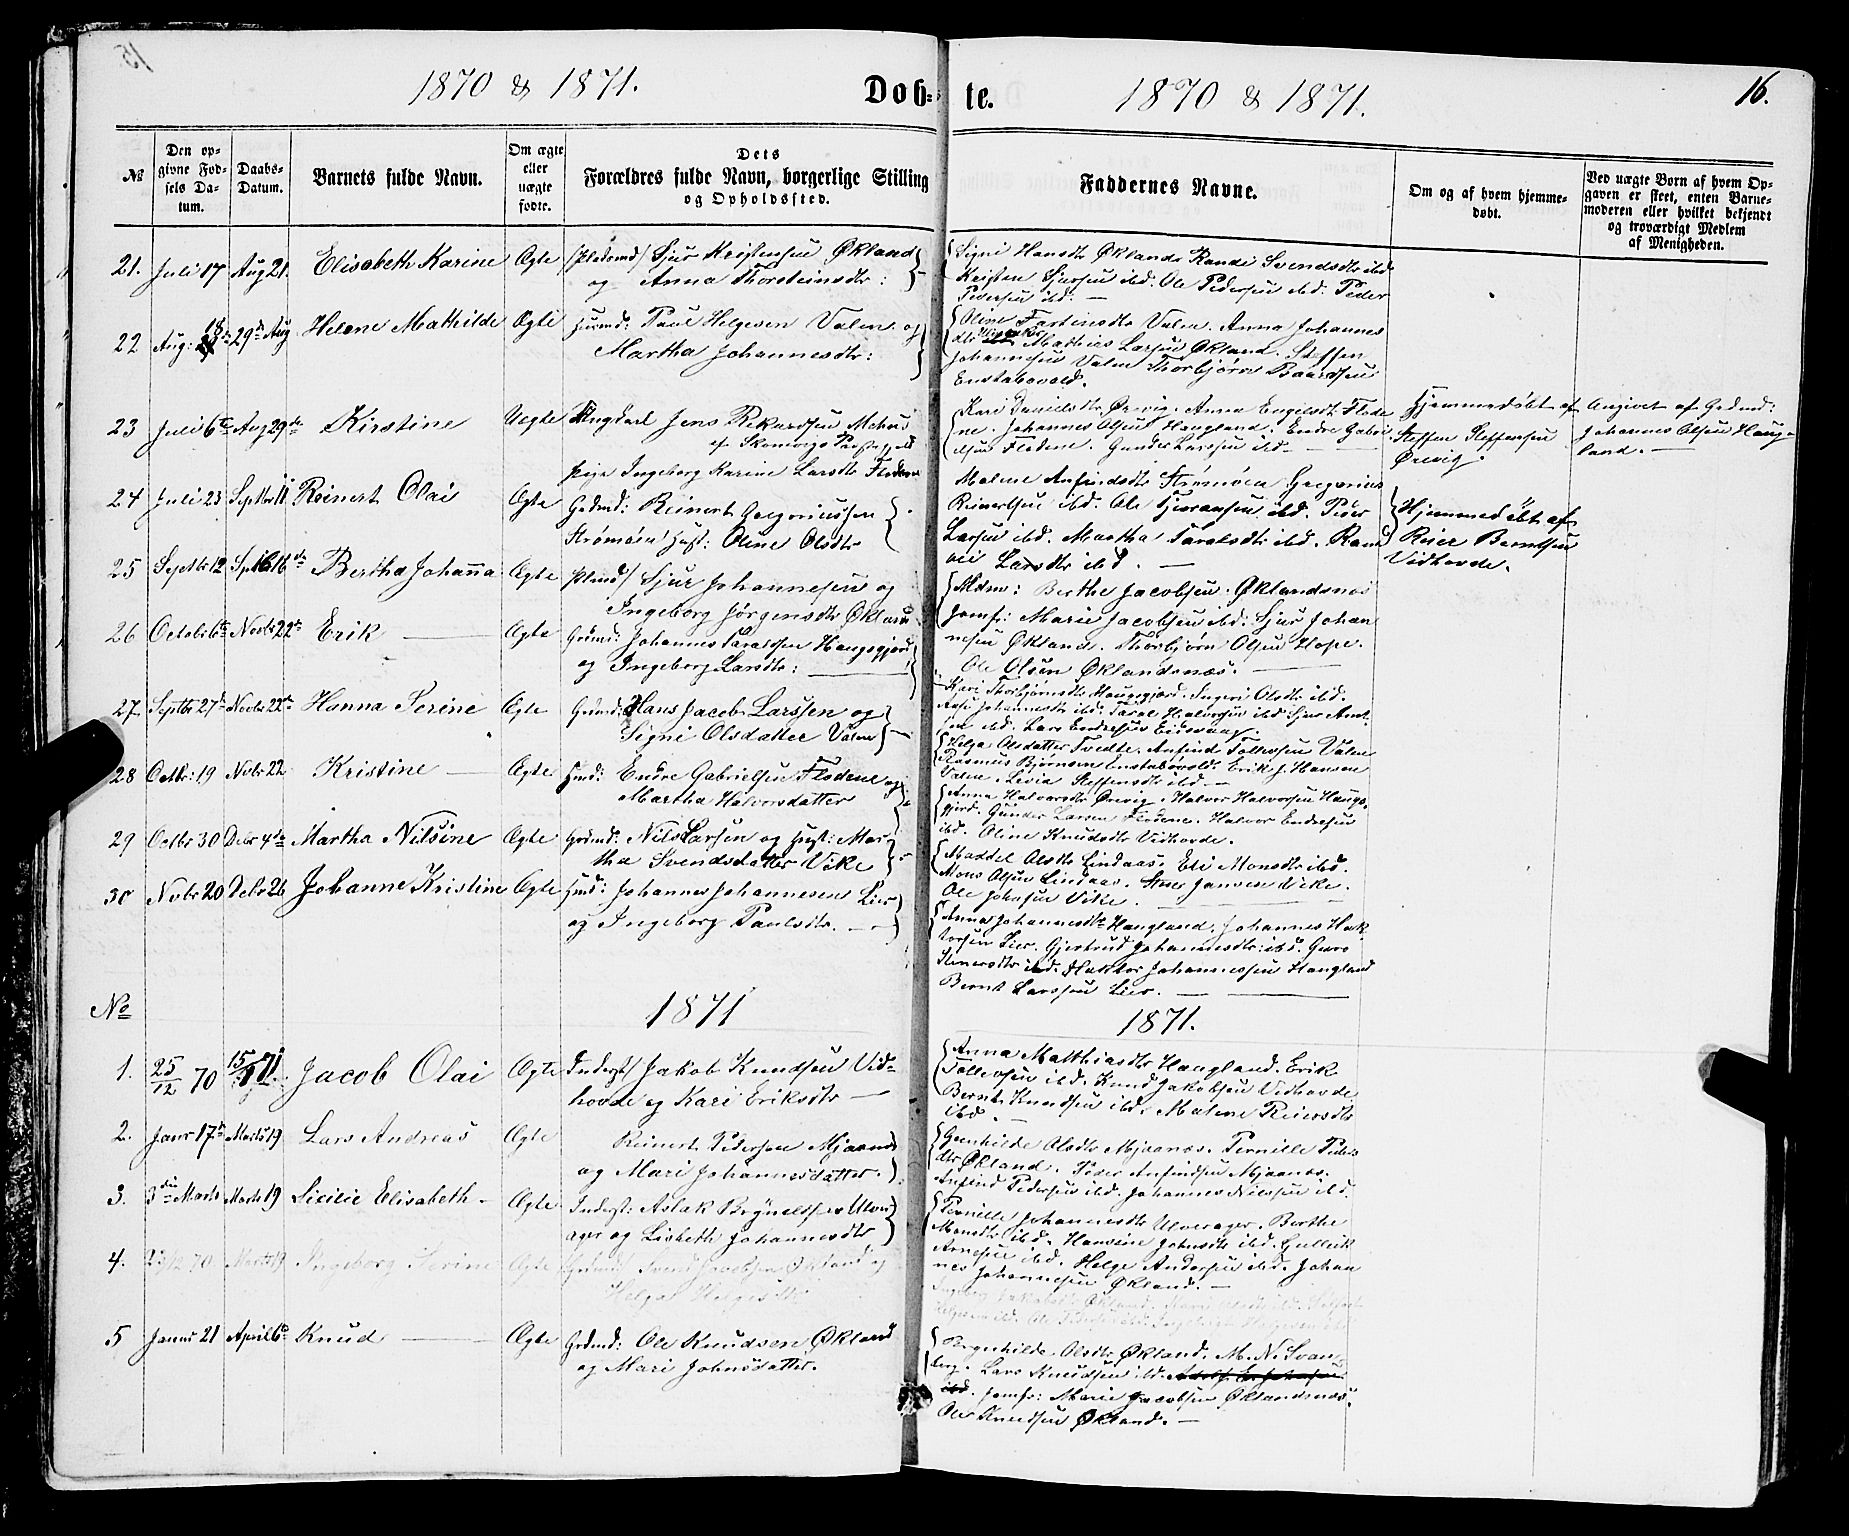 15
1870 & 1871.
Døb-
te.
1870 & 1871.
16.
№
Den op-
givne Fød-
sels Da-
tum.
Daabs-
Datum.
Barnets fulde Navn.
Om ægte
eller
uægte
fødte.
Dets
Forældres fulde Navn, borgerlige Stilling
og Opholdssted.
Faddernes Navne.
Om og af hvem hjemme-
døbt.
Ved uægte Børn af hvem Op-
gaven er skeet, enten Barne-
moderen eller hvilket bekjendt
og troværdigt Medlem
af Menigheden.
21. Juli 17 Aug 21. Elisabeth Karine Ægte Sjur Kristensen Økland
og Anna Thorsteinsdtr:
Signi Hansdtr Økland. Randi Svendsdtr ibd.
Kristen Sjursen ibd. Ole Pedersen ibd. Peder
Pedersen ibd. —
22 Aug: 29de Aug Helene Mathilde Ægte Husmd: Paul Helgesen Valen og
Martha Johannesdtr:
Oline Torstinsdtr Valen. Anna Johannes
dtr Mathias Larsen Økland. Steffen
Johannesen Valen Thorbjørn Baardsen
Enstabovold.
23 Juli 6te Aug 29de Kirstine Uægte Ungkarl Jens Rikardsen Mehus
af Skonevigs Præstegjeld
Pige Ingeborg Karine Larsdtr Flodene
Kari Danielsdtr Ørevig. Anna Engelsdtr Flode
ne. Johannes Olsen Haugland. Endre Gabri
elsen Flodene. Gunder Larssen ibd —
Hjemmedøbt af
Steffen Steffensen
Ørevig.
Angivet af Grdmd:
Johannes Olsen Haug-
land. —
24 Juli 23 Septbr 11 Reinert Olai Ægte Grdmd: Reinert Gregoriussen
Strømøen Hust: Oline Olsdtr
Malene Anfindsdtr Strømøen Gregorius
Reinertsen ibd. Ole Tjeransen ibd. Peder
Larsen ibd. Martha Taralsdtr ibd. Rand
vei Larsdtr ibd. —
Hjemmedøbt af
Reier Berntsen
Vidhovde.
25 Septbr 12 Bertha Johanna Ægte Sjur Johannesen og
Ingeborg Jørgensdtr Økland
Mdm: Berthe Jacobsen. Øklandsnes
Jomfr: Marie Jacobsen ibd: Sjur Johan
nesen Økland. Thorbjørn Olsen Hope.
Ole Olsen Øklandsnæs.
26 Octobr 6te Novbr 22de Erik — Ægte Grdmd: Johannes Taralsen Haugsgjerd
og Ingeborg Larsdtr: —
Kari Thorbjørnsdtr Haugsgjerd. Ingeri Olsdtr ibd.
Johannesdtr ibd. Taral Halvorsen ibd
ibd. Lars Endresen
27 Septbr 27de Novbr 22de Hanna Serine Ægte Grdmd: Hans Jacob Larssen og
Signi Olsdatter Valen
Helga Olsdatter Tvedte. Anfind Tollevsen Valen
Rasmus Bjørnsen Enstabovold. Erik J. Hansen
Valen. Levia Steffensdtr ibd —
28 Octbr: 19 Novbr 22 Kristine — Ægte Hmd: Endre Gabrielsen Flodene og
Martha Halvorsdatter
Anna Halvarsdtr Ørevig. Halvor Halvorsen Haugs-
gjerd. Gunder Larsen Flodene. Halvor Endresen
ibd. Oline Knudsdtr Vidhovde.
29 Octbr 30 Debr 4de Martha Nilsine Ægte Grdmd: Nils Larsen og Hust: Mar-
tha Svendsdatter Vike
Maddel Olsdtr Lindaas. Eli Monsdtr ibd.
Mons Olsen Lindaas. Jansen Vike.
Ole Johnsen Vike.
30 Novbr 20 Debr 26 Johanne Kristine Ægte Hmd: Johannes Johannesen Lier
og Ingeborg Paulsdtr. —
Anna Johannesdtr Haugland. Johannes Hak
torsen Lier. Gjertrud Johannesdtr: ibd. Guro
Stenersdtr ibd. Haktor Johannessen Haugland
Bernt Larssen Lier. —
No
1871
1871.
1. 25/12 70 Jacob Olai Ægte Inderst/ Jakob Knudsen Vid-
hovde og Kari Eriksdtr —
Anna Matthiasdtr Haugland. Erik
Tollevsen ibd. Knud Jakobsen Vidhovde
Bernt Knudsen ibd. Malene Reiersdtr
ibd.
2. Janr 17de Marts 19 Lars Andreas Ægte Reinert Pedersen Mjaanes
og Mari Johannesdatter.
Gunhilde Olsdtr Mjaanes. Pernille Peders
dtr Økland. Peder Anfindsen Mjaanes.
Anfind Pedersen ibd. Johannes Nilssen ibd.
3. 3die Marts Marts 19 Sicilie Elisabeth — Ægte Inderst: Aslak Brynildsen Ulver
ager og Lisbeth Johannesdtr
Pernille Johannesdtr Ulverager. Berthe
Monsdtr ibd. Hansine Johnsdtr ibd. Gullik
Arnesen ibd. Helge Andersen ibd. Johan
nes Johannesen Økland. —
4. 23/12 70 Marts 19 Ingeborg Serine Ægte Grdmd Svend Jacobsen Økland og
Helga Helgesdtr
5 Januar 21 April 6te Knud — Ægte Grdmd: Ole Knudsen Økland
og Mari Johnsdatter.
Brynhilde Olsdtr Økland. M. N. Svan-
berg. Lars Knudsen ibd.
ibd. Jomfr: Marie Jacobsen Øklandsnæs.
Ole Knudsen Økland. —